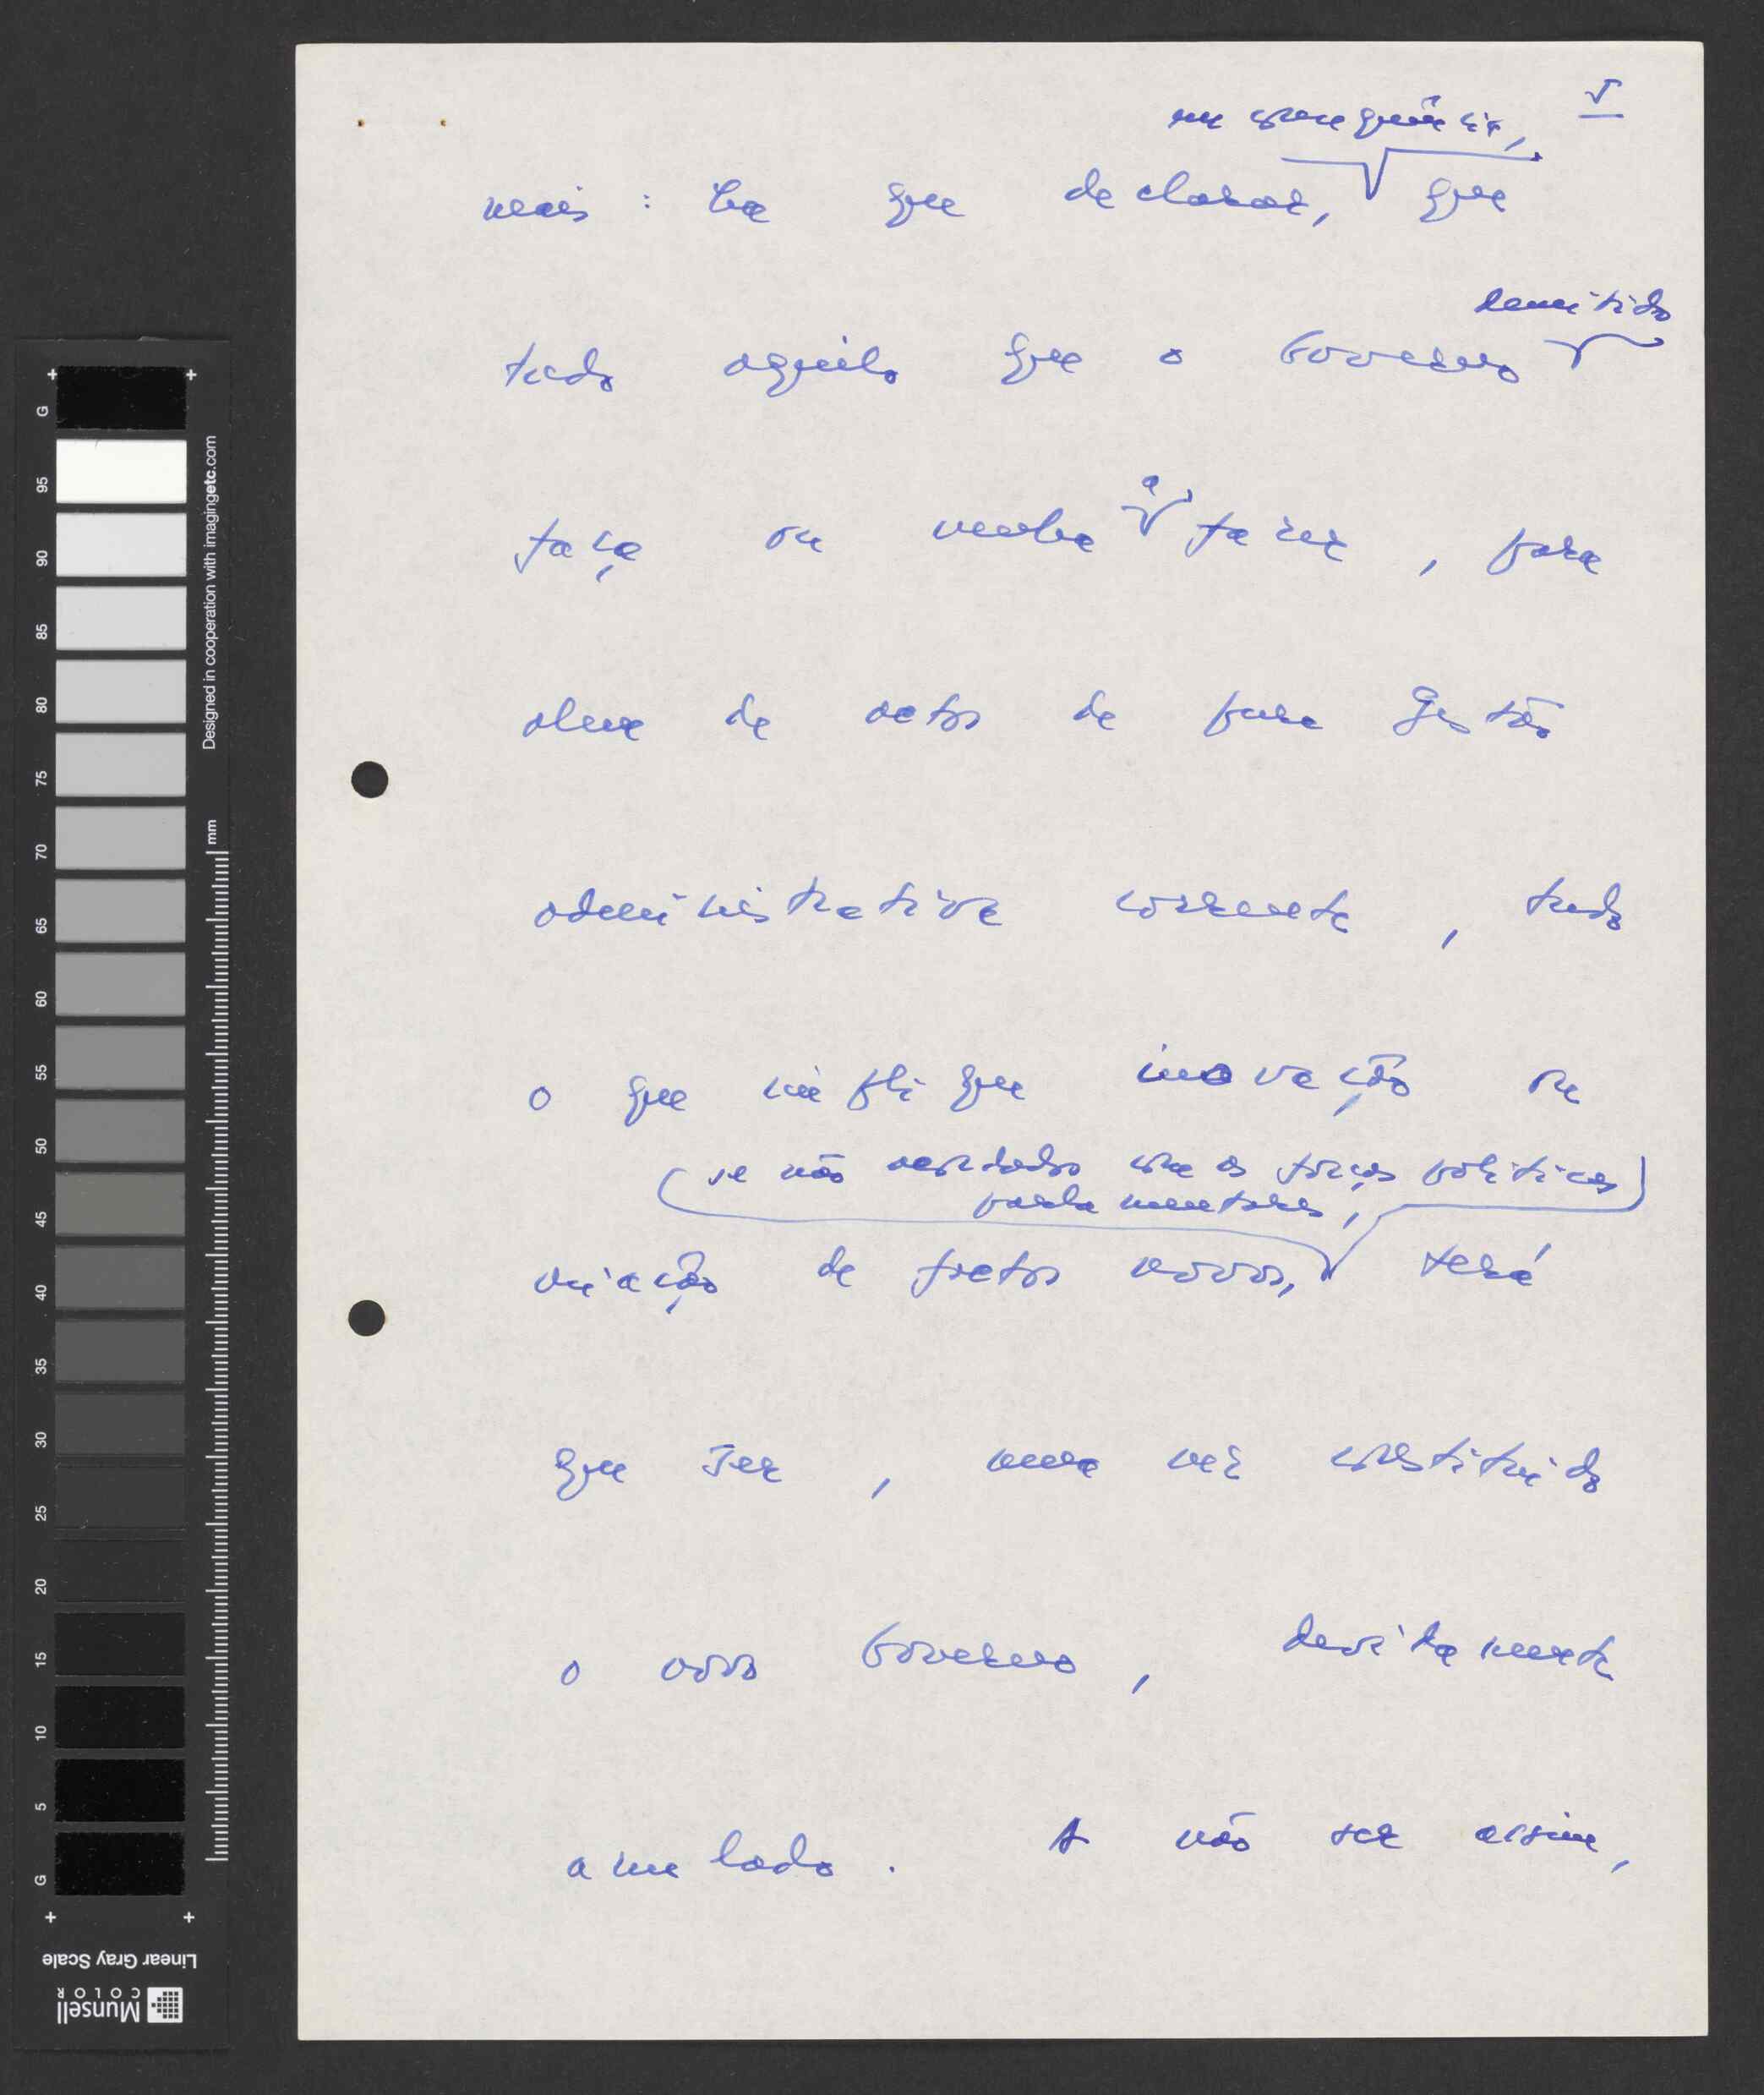 5
em consequência,
mais : há que declarar, que
demitido
tudo aquilo que o Governo
a
faça ou venha fazer , para
além de actos de pura gestão
administrativa corrente , tudo
o que implique inovação ou
(se não acordado com as forças políticas
parlamentares,)
criação de factos novos, terá
que ser , uma vez constituído
o novo Governo , devidamente
anulado . A não ser assim,
G
95
90
85
80
75
70
65
60
55
50
45
40
35
30
25
20
15
10
5
G
Designed in cooperation with imagingetc.com
mm
Linear Gray Scale
Munsell
COLOR